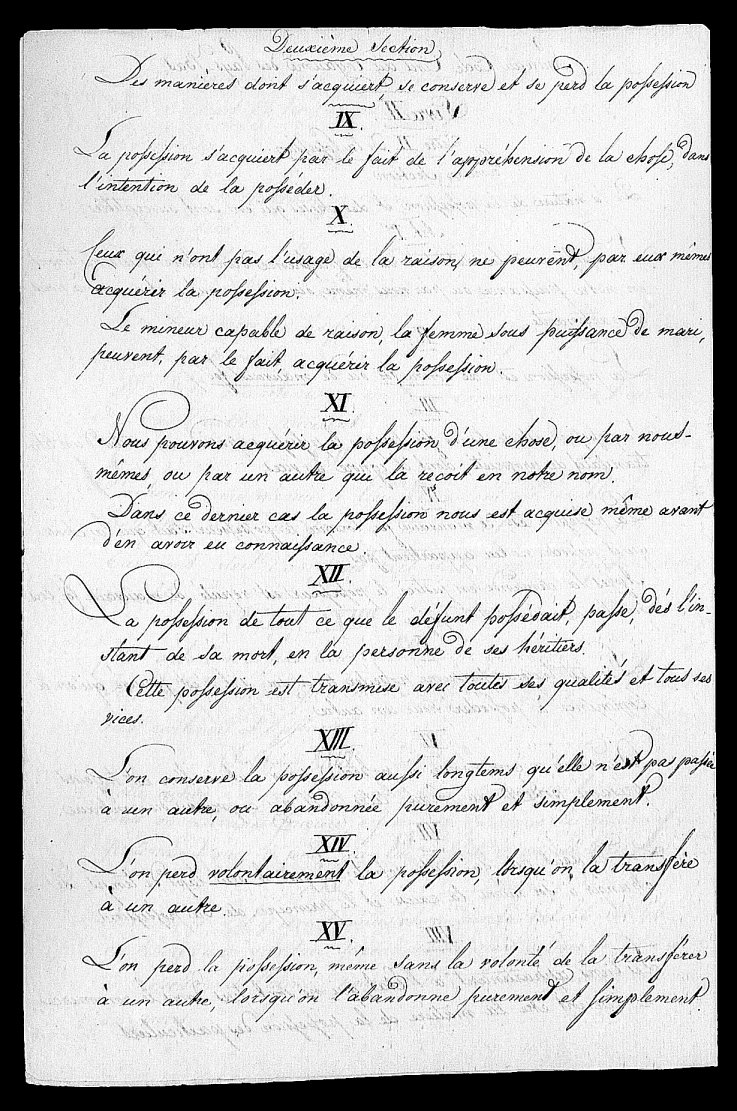 Deuxième Section
Des manières dont s'acquiert, se conserve et se perd la possession
IX.
La possession s'acquiert par le fait de l'appréhension de la chose, dans
l'intention de la posséder.
X.
Ceux qui n'ont pas l'usage de la raison, ne peuvent, par eux mêmes
acquérir la possession.
Le mineur capable de raison, la femme sous puissance de mari,
peuvent, par le fait, acquérir la possession.
XI.
Nous pouvons acquérir la possession d'une chose, ou par nous-
mêmes, ou par un autre qui la reçoit en notre nom.
Dans ce dernier cas la possession nous est acquise même avant
d'en avoir eu connaissance
XII.
La possession de tout ce que le défunt possédait, passe, dés l'in-
stant de sa mort, en la personne de ses héritiers.
Cette possession est transmise avec toutes ses qualités et tous ses
vices.
XIII.
L'on conserve la possession aussi longtems qu'elle n'est pas passée
à un autre, ou abandonnée purement et simplement.
XIV.
L'on perd volontairement la possession, lorsqu'on la transfère
à un autre
XV.
L'on perd la possession, même sans la volonté de la transférer
à un autre, lorsqu'on l'abandonne purement et simplement